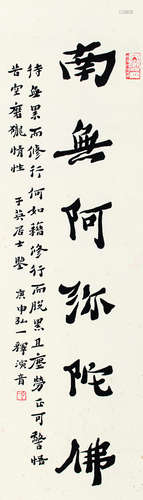 南無阿彌陀佛
待無累而修行何如藉修行而脫累且塵勞正可警悟
苦空磨礲情性
子英居士鑒 庚申弘一釋演音